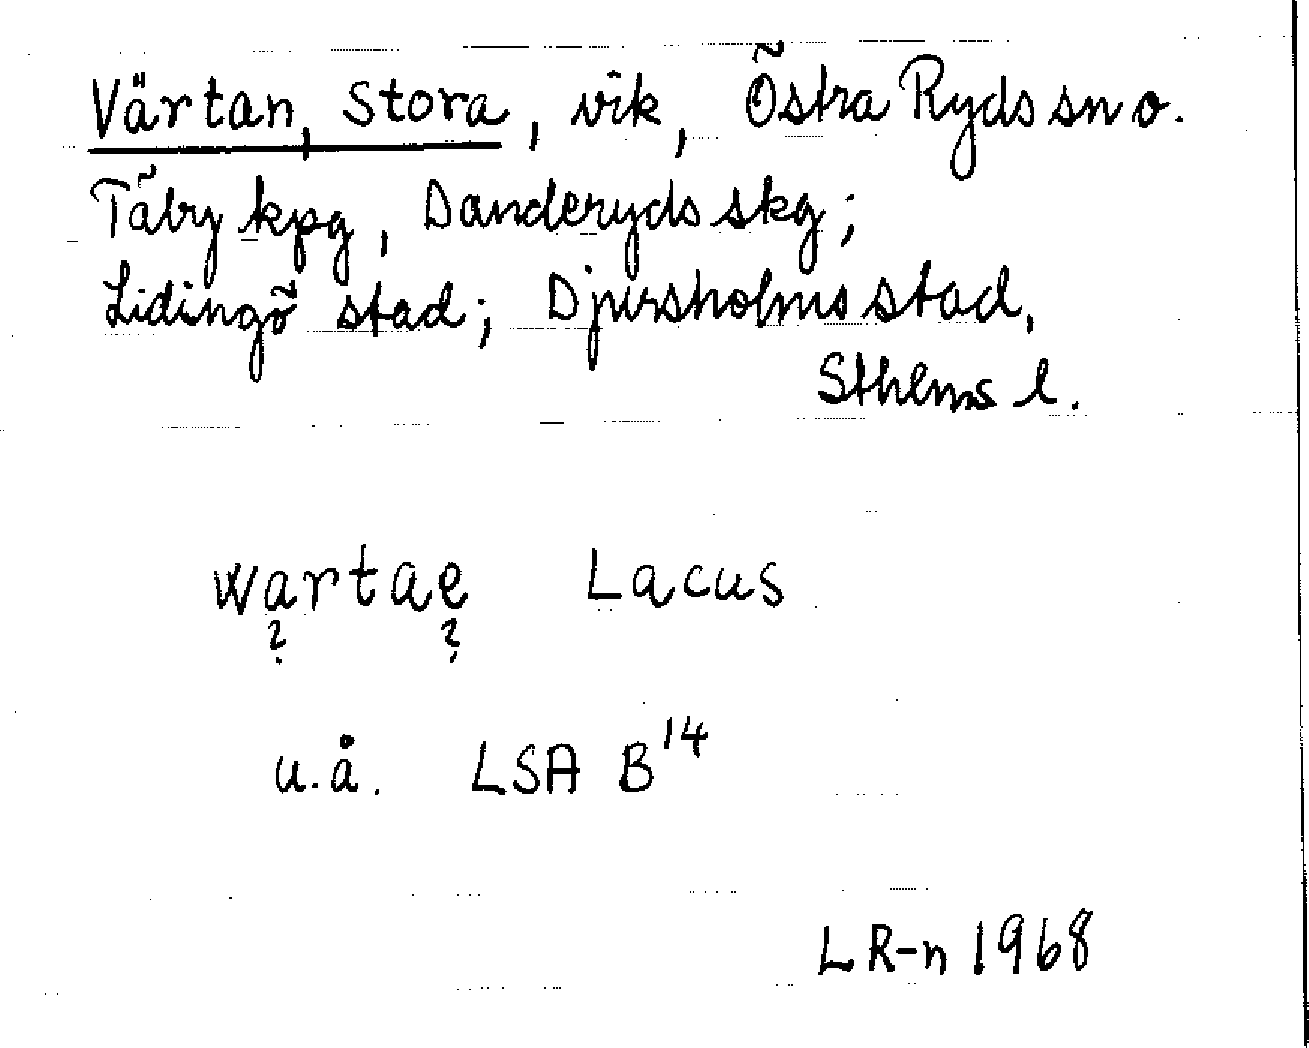 Värtan, Stora, vik, Östra Ryds sn o.
Täby kpg, Danderyds skg;
Lidingö stad; Djursholms stad,
Sthlms l.
wartae Lacus
? ?
u.å. LSA B14
LR-n 1968